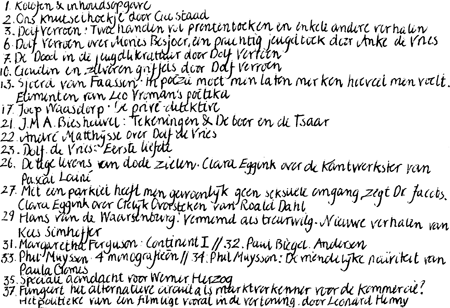 1. Kolofon & inhoudsopgave
2. Ons knutselhoekje door Gustaaf
3. Dolf Verroen: Twee handen vol prentenboeken en enkele andere verhalen
6. Dolf Verroen over Mones Besjoer, een prachtig jeugdboek door Anke de Vries
7. De Dood in de jeugdliteratuur door Dolf Verroen
10. Gouden en zilveren griffels door Dolf Verroen
13. Sjoerd van Faassen: Je poëzie moet men laten merken hoeveel men voelt.
Elementen van Leo Vroman's poëtika
17 Joep Waasdorp: De privé-detektive
21. J.M.A. Biesheuvel: Tekeningen & De boer en de Tsaar
22. André Matthijsse over Dolf de Vries
23. Dolf de Vries: Eerste liefde
26. De lege levens van dode zielen. Clara Eggink over de Kantwerkster van
Pascal Lainé
27. Met een parkiet heeft men gewoonlijk geen seksuele omgang, zegt Dr Jacobs.
Clara Eggink over Gelijk Oversteken van Roald Dahl
29 Hans van de Waarsenburg: Vermomd als treurwilg. Nieuwe verhalen van
Kees Simhoffer
31. Margaretha Ferguson: Continent I // 32. Paul Biegel: Andersen
33. Phil Muysson: 4 monografieën // 34. Phil Muysson: De vriendelijke naïviteit van
Paula Gomes
35. Speciale aandacht voor Werner Herzog
37. Fungeert het alternatieve circuit als marktverkenner voor de kommercie?
Het politieke van een film ligt vooral in de vertoning. door Leonard Henny